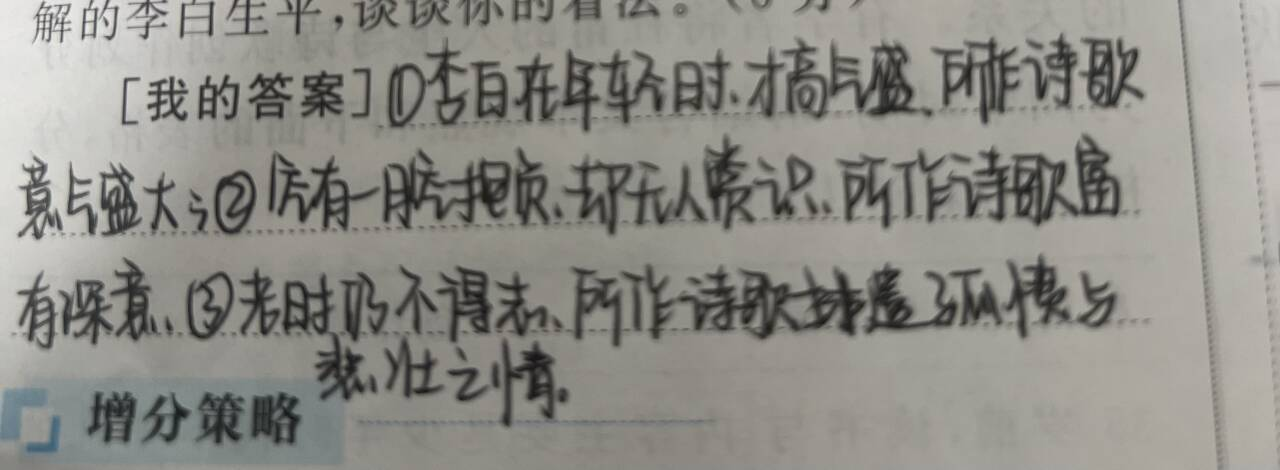 解的李白生平,谈谈你的看法。(6分)
[我的答案]①李白在年轻时、才高气盛、所作诗歌
意气盛大;②后有一腔抱负、却无人赏识、所作诗歌富
有深意、③老时仍不得志、所作诗歌排遣孤愤与
悲壮之情。
增分策略